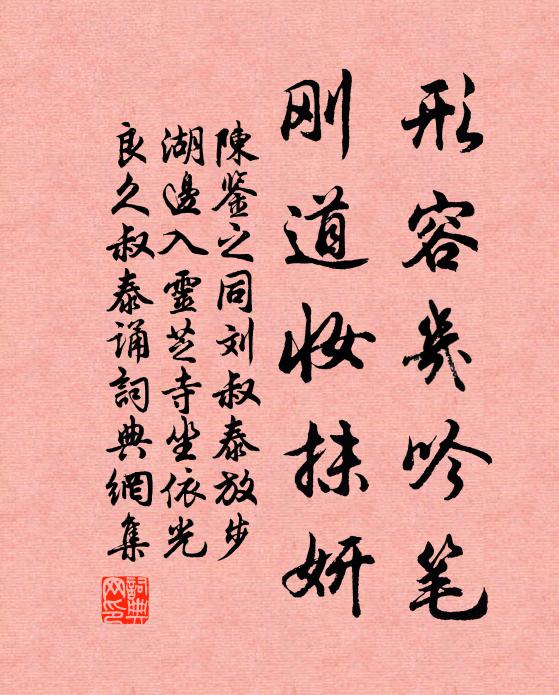 形容幾吟笔
刚道妆抹妍
陳鉴之同刘叔泰放步
湖邊入靈芝寺坐依光
良久叔泰诵詞典網集
詞典
网印